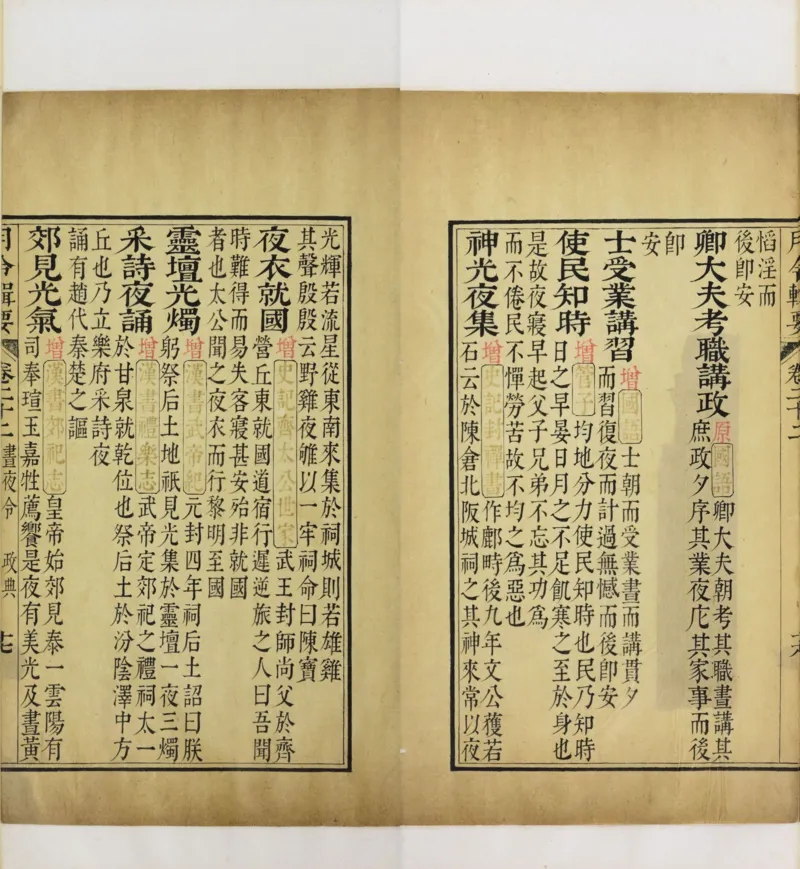 月令輯要 卷二十二
慆淫而
後卽安
卿大夫考職講政 原 國語 卿大夫朝考其職晝講其
庶政夕序其業夜庀其家事而後
卽
安
士受業講習 增 國語 士朝而受業晝而講貫夕
而習復夜而計過無憾而後卽安
使民知時 增 管子 均地分力使民知時也民乃知時
日之早晏日月之不足飢寒之至於身也
是故夜寢早起父子兄弟不忘其功爲
而不倦民不憚勞苦故不均之爲惡也
神光夜集 增 史記封禪書 作鄜時後九年文公獲若
石云於陳倉北阪城祠之其神來常以夜
光輝若流星從東南來集於祠城則若雄雞
其聲殷殷云野雞夜雊以一牢祠命曰陳寶
夜衣就國 增 史記齊太公世家 武王封師尚父於齊
營丘東就國道宿行遲逆旅之人曰吾聞
時難得而易失客寢甚安殆非就國
者也太公聞之夜衣而行黎明至國
靈壇光燭 增 漢書武帝紀 元封四年祠后土詔曰朕
躬祭后土地祇見光集於靈壇一夜三燭
采詩夜誦 增 漢書禮樂志 武帝定郊祀之禮祠太一
於甘泉就乾位也祭后土於汾陰澤中方
丘也乃立樂府采詩夜
誦有趙代秦楚之謳
郊見光氣 增 漢書郊祀志 皇帝始郊見泰一雲陽有
司奉瑄玉嘉牲薦饗是夜有美光及晝黃
月令輯要 卷二十二 晝夜令 政典